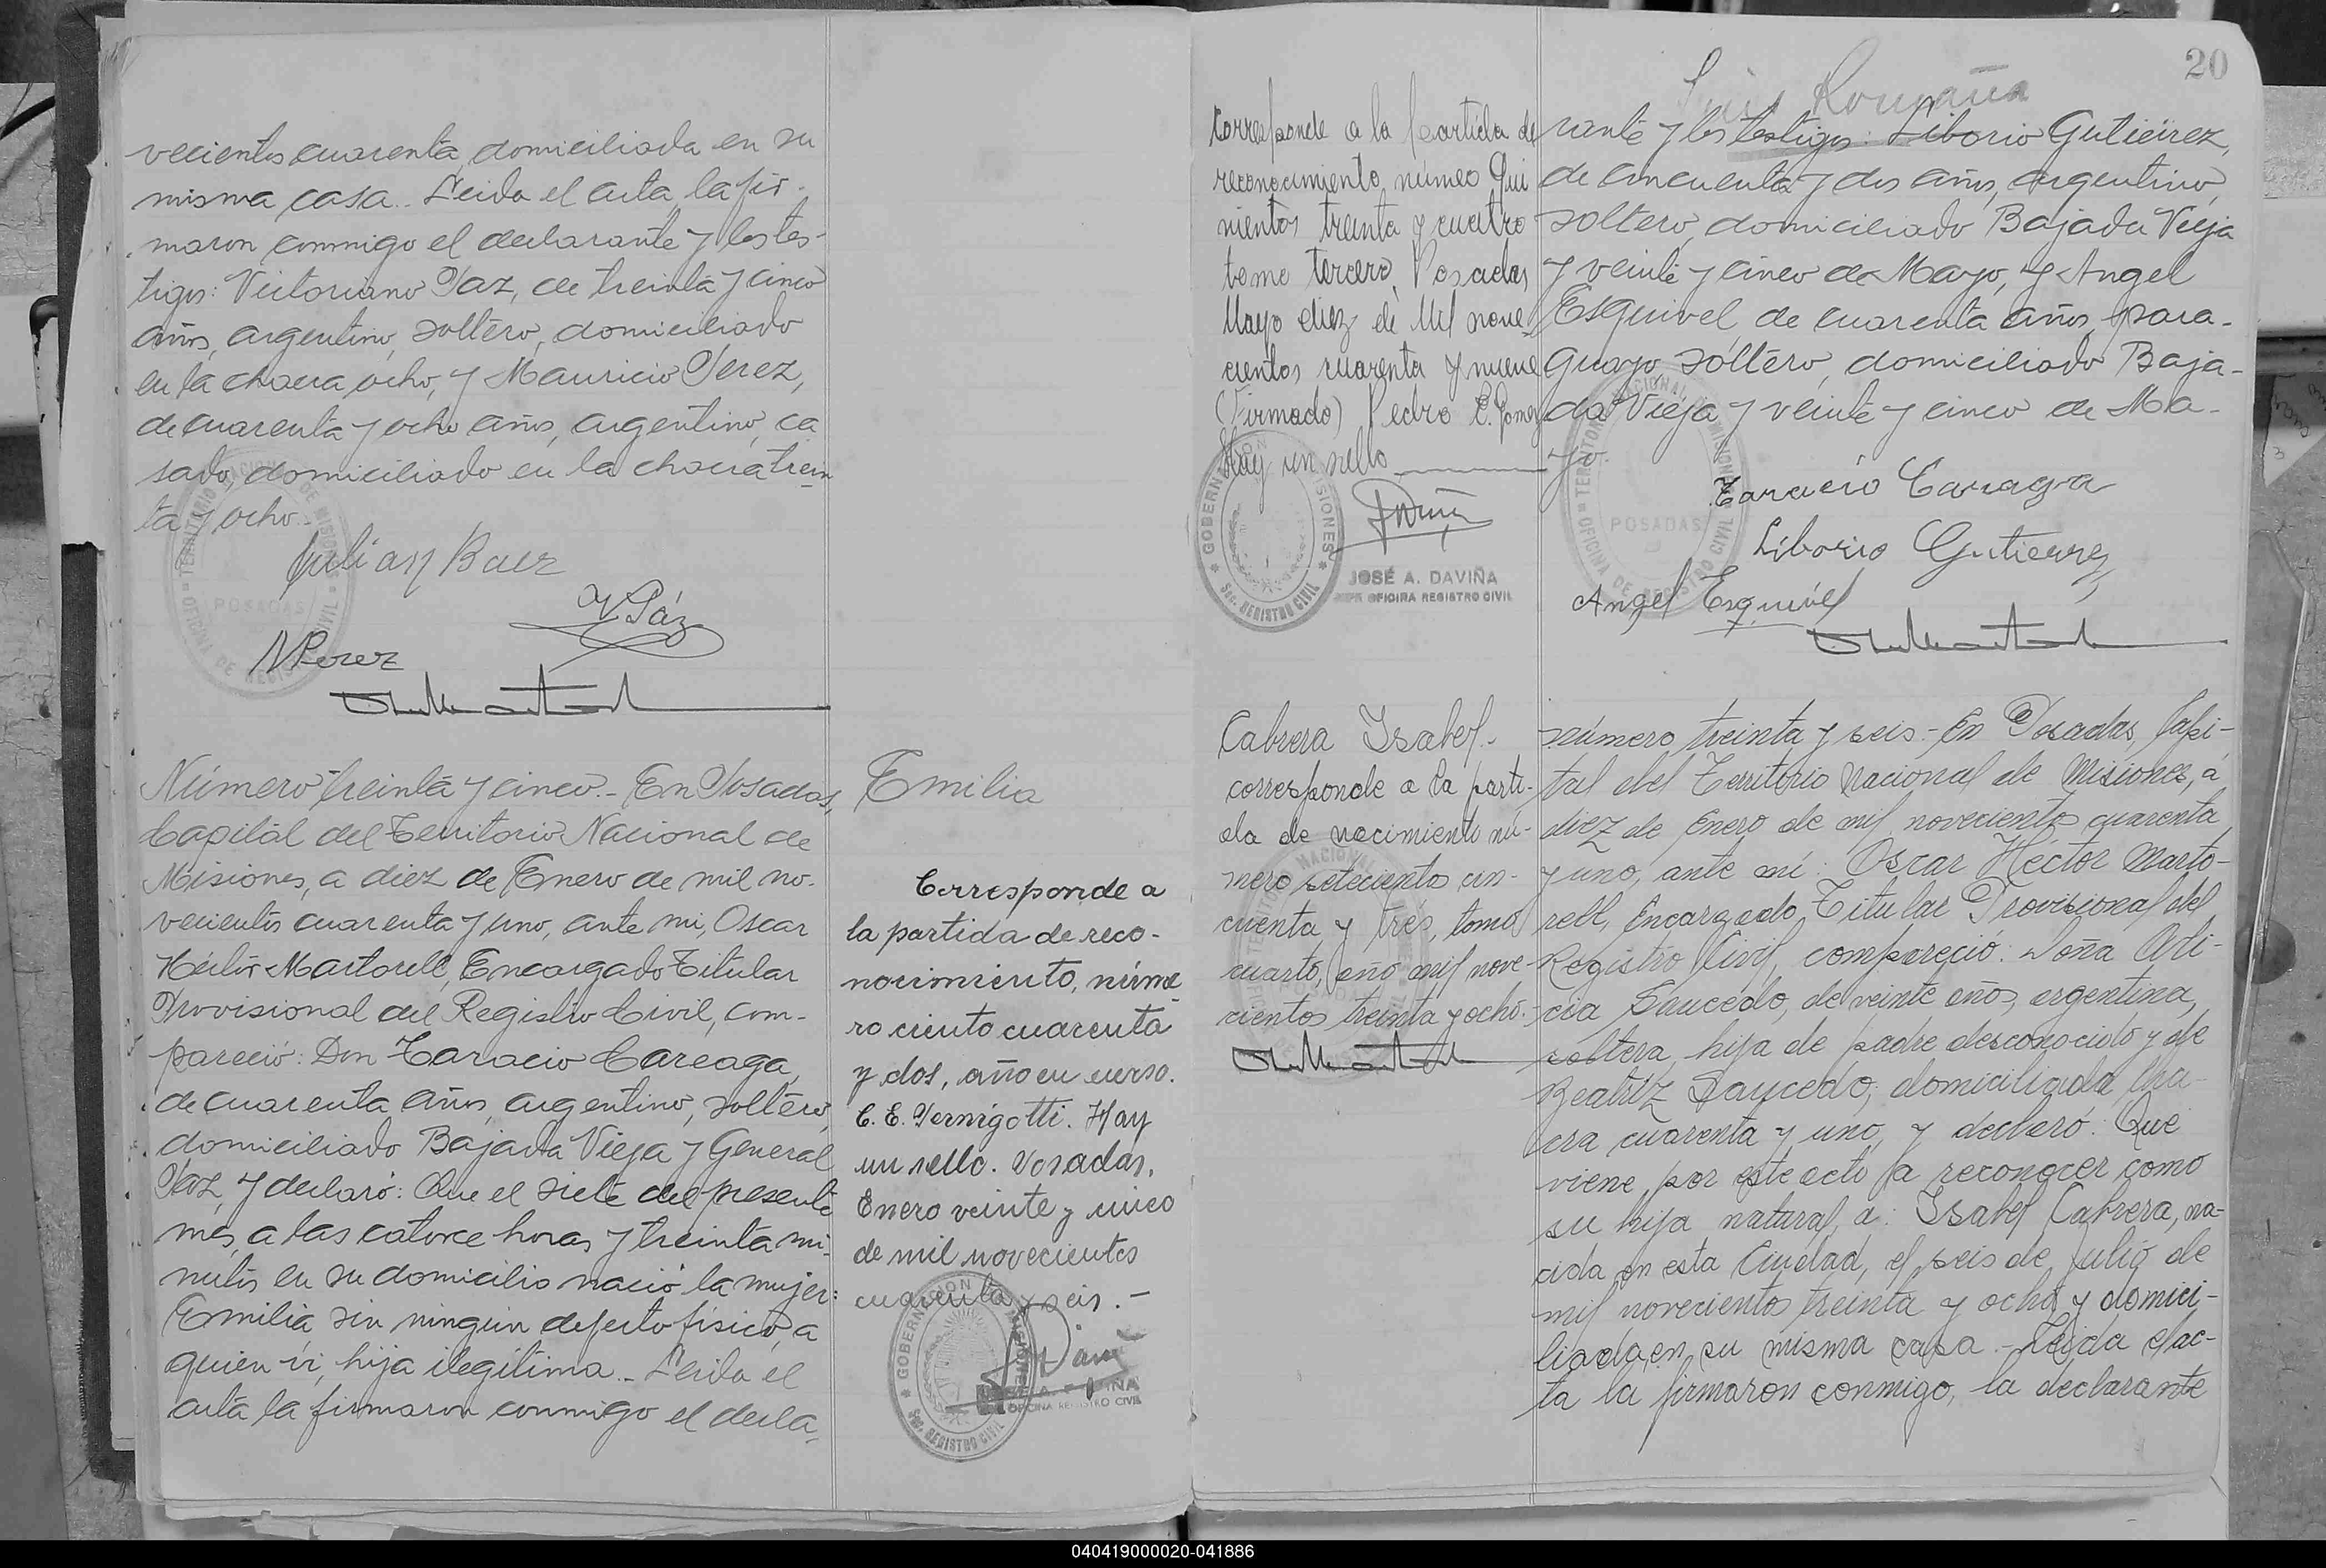 vecientos cuarenta, domiciliada en su
misma casa.- Leida el acta, la fir-
maron conmigo el declarante y los tes-
tigos: Victoriano Paz, de treinta y cinco
años, argentino, soltero, domiciliado
en la chacra ocho, y Mauricio Perez,
de cuarenta y ocho años, argentino, ca
sado, domiciliado en la chacra trein
ta y ocho.-
Julian Baez
V Páz
M Perez
Número treinta y cinco.- En Posadas,
Capital del Territorio Nacional de
Misiones, a diez de Enero de mil no-
vecientos cuarenta y uno, ante mi, Oscar
Héctor Martorell, Encargado Titular
Provisional del Registro Civil, com-
pareció: Don Taracio Careaga,
de cuarenta años, argentino, soltero,
domiciliado Bajada Vieja y General
Paz, y declaró: Que el siete del presente
mes, a las catorce horas y treinta mi-
nutos en su domicilio nació la mujer:
Emilia, sin ningún defecto físico, a
quien ví, hija ilegítima.- Leida el
acta la firmaron conmigo el decla-
Emilia
Corresponde a
la partida de reco-
nocimiento, núme
ro ciento cuarenta
y dos, año en curso.
C. E. Pernigotti. Hay
un sello. Posadas,
Enero veinte y cinco
de mil novecientos
cuarenta y seis.-
GOBERNACION MISIONES
Sec. REGISTRO CIVIL
OFICINA REGISTRO CIVIL
20
Luis Romaña
Corresponde a la partida de
reconocimiento número Qui
nientos treinta y cuatro
tomo tercero, Posadas
Mayo diez de Mil nove-
cientos cuarenta y nueve
(Firmado) Pedro E. Gomez
Hay un sello
GOBERNACION MISIONES
Sec. REGISTRO CIVIL
JOSÉ A. DAVIÑA
JEFE OFICINA REGISTRO CIVIL
rante y los testigos: Liborio Gutierrez,
de cincuenta y dos años, argentino,
soltero, domiciliado Bajada Vieja
y veinte y cinco de Mayo, y Angel
Esquivel de cuarenta años, para-
guayo, soltero, domiciliado Baja-
da Vieja y veinte y cinco de Ma-
yo.
POSADAS
Taracio Caraga
Liborio Gutierrez
Angel Esquivel
Cabrera Isabel.-
corresponde a la parti-
da de nacimiento nú-
mero setecientos cin-
cuenta y tres, tomo
cuarto, año mil nove-
cientos treinta y ocho.-
número treinta y seis.- En Posadas, Capi-
tal del Territorio Nacional de Misiones, a
diez de Enero de mil novecientos cuarenta
y uno, ante mí: Oscar Héctor Marto-
rell, Encargado Titular Provisional del
Registro Civil, compareció: Doña Arti-
cia Saucedo, de veinte años, argentina,
soltera, hija de padre desconocido y de
Beatriz Saucedo, domiciliada Cha-
cra cuarenta y uno, y declaró: Que
viene por este acto a reconocer como
su hija natural, a: Isabel Cabrera, na-
cida en esta Ciudad, el seis de Julio de
mil novecientos treinta y ocho y domici-
liada en su misma casa.- Leida el ac-
ta la firmaron conmigo, la declarante
040419000020-041886